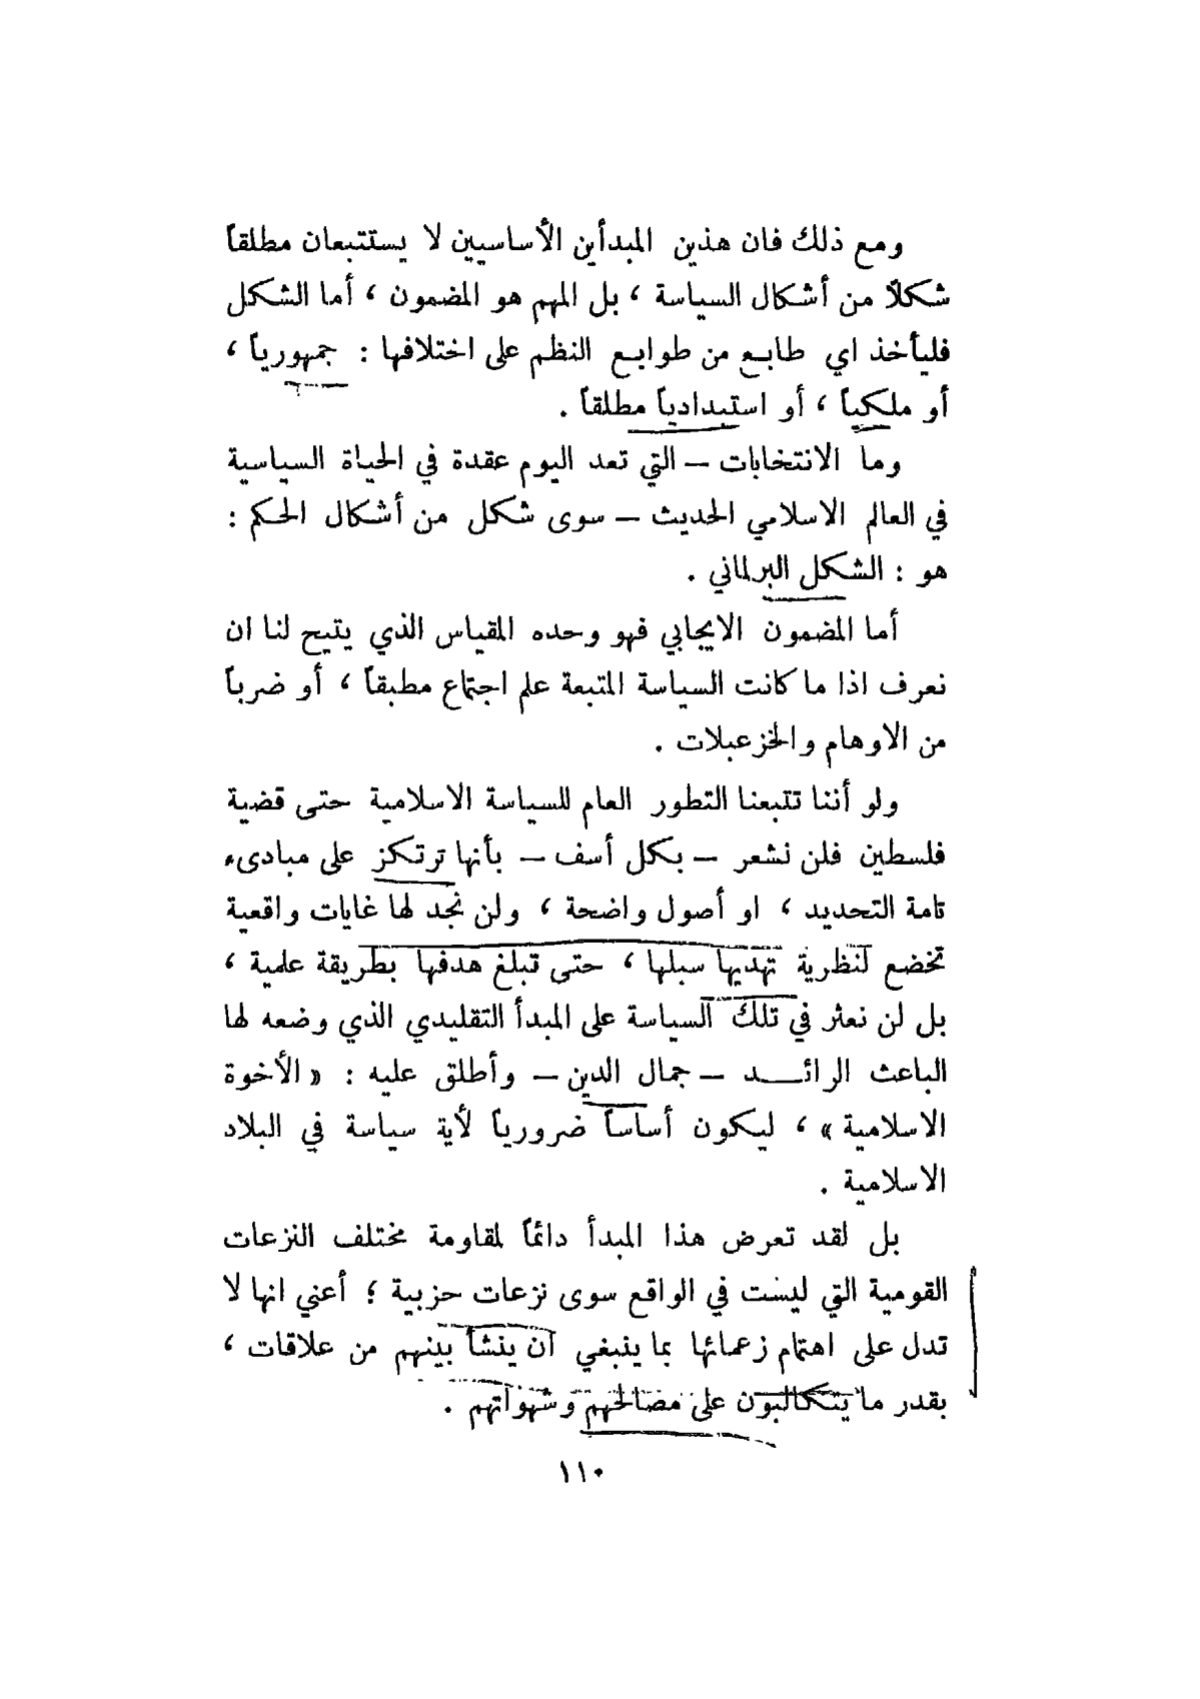 ومع ذلك فان هذين المبدأين الأساسيين لا يستتبعان مطلقاً
شكلاً من أشكال السياسة ، بل المهم هو المضمون ، أما الشكل
فليأخذ اي طابع من طوابع النظم على اختلافها : جمهورياً ،
أو ملكياً ، أو استبدادياً مطلقاً .
وما الانتخابات – التي تعد اليوم عقدة في الحياة السياسية
في العالم الاسلامي الحديث – سوى شكل من أشكال الحكم :
هو : الشكل البرلماني .
أما المضمون الايجابي فهو وحده المقياس الذي يتيح لنا ان
نعرف اذا ما كانت السياسة المتبعة علم اجتماع مطبقاً ، أو ضرباً
من الاوهام والخزعبلات .
ولو أننا تتبعنا التطور العام للسياسة الاسلامية حتى قضية
فلسطين فلن نشعر – بكل أسف – بأنها ترتكز على مبادىء
تامة التحديد ، او أصول واضحة ، ولن نجد لها غايات واقعية
تخضع لنظرية تهديها سبلها ، حتى تبلغ هدفها بطريقة علمية ،
بل لن نعثر في تلك السياسة على المبدأ التقليدي الذي وضعه لها
الباعث الرائـــد – جمال الدين – وأطلق عليه : « الأخوة
الاسلامية » ، ليكون أساساً ضرورياً لأية سياسة في البلاد
الاسلامية .
بل لقد تعرض هذا المبدأ دائماً لمقاومة مختلف النزعات
القومية التي ليست في الواقع سوى نزعات حزبية ؛ أعني انها لا
تدل على اهتمام زعمائها بما ينبغي ان ينشأ بينهم من علاقات ،
بقدر ما يتكالبون على مصالحهم وشهواتهم .
١١٠